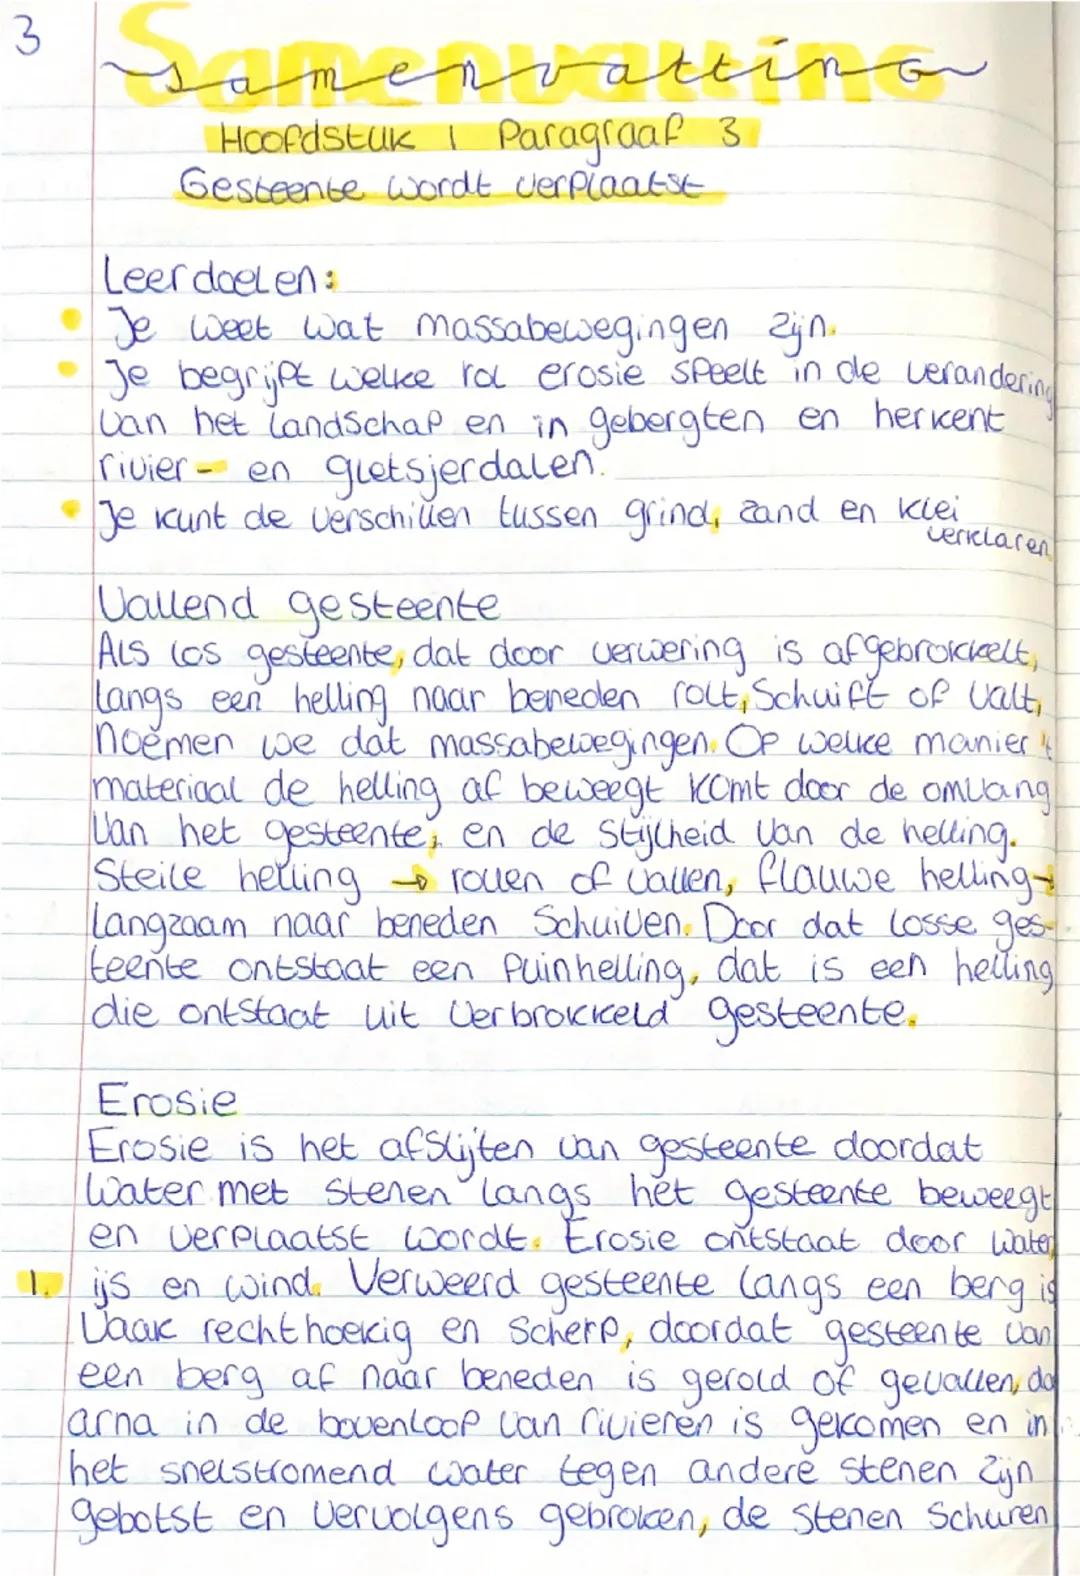 3
Samenvatting
Samenvatting
Hoofdstuk 1 Paragraaf 3
Gesteente wordt verplaatst
Leerdoelen:
Je weet wat massabewegingen zijn.
Je begrijpt welke rol erosie speelt in de verandering
van het landschap en in gebergten en herkent
rivier- en gletsjerdalen.
Je kunt de verschillen tussen grind, zand en klei
verklaren
Vallend gesteente
Als los gesteente, dat door verwering is afgebrokkelt,
langs een helling naar beneden rolt, schuift of valt,
noemen we dat massabewegingen. Op welke manier 't
materiaal de helling af beweegt komt door de omvang
van het gesteente, en de stijlheid van de helling.
Steile helling → rollen of vallen, flauwe helling→
Langzaam naar beneden schuiven. Door dat losse ges-
teente ontstaat een puinhelling, dat is een helling
die ontstaat uit verbrokkeld gesteente.
Erosie
Erosie is het afslijten van gesteente doordat
water met stenen langs het gesteente beweegt
en verplaatst wordt. Erosie ontstaat door water,
1. ijs en wind. Verweerd gesteente langs een berg is
vaak rechthoekig en scherp, doordat gesteente van
een berg af naar beneden is gerold of gevallen, da
arna in de bovenloop van rivieren is gekomen en in
het snelstromend water tegen andere stenen zijn
gebotst en vervolgens gebroken, de stenen schuren